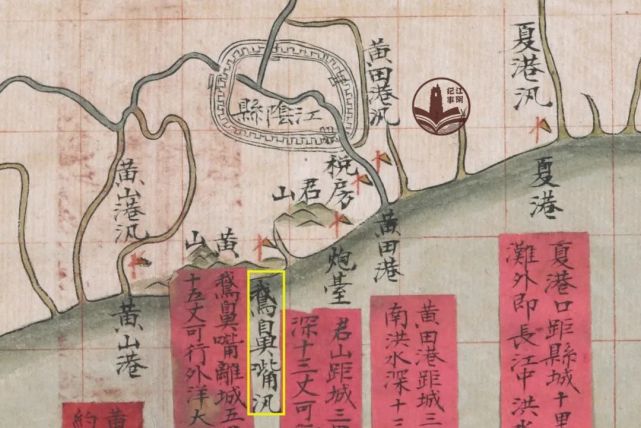 夏港汛
夏港
夏港口距縣城十里
灘外即長江中洪水
江阴
纪事
黄田港汛
税房
黄田港
黄田港距城三
南洪水深十三
江陰縣
君山
炮臺
君山距城三
深十三丈可
鵝鼻嘴汛
黄山
鵝鼻嘴離城五
十五丈可行外洋大
黄山港汛
黄山港
黄
約